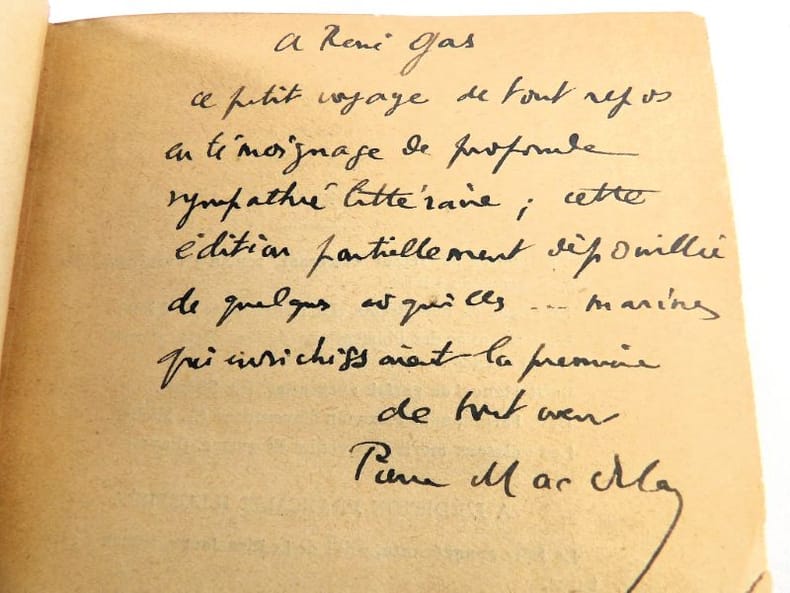 A René Gas
ce petit voyage de tout repos
en témoignage de profonde
sympathie littéraire ; cette
édition partiellement dépouillée
de quelques coquilles ... marines
qui enrichissaient la première
de tout coeur
Pierre Mac Orlan